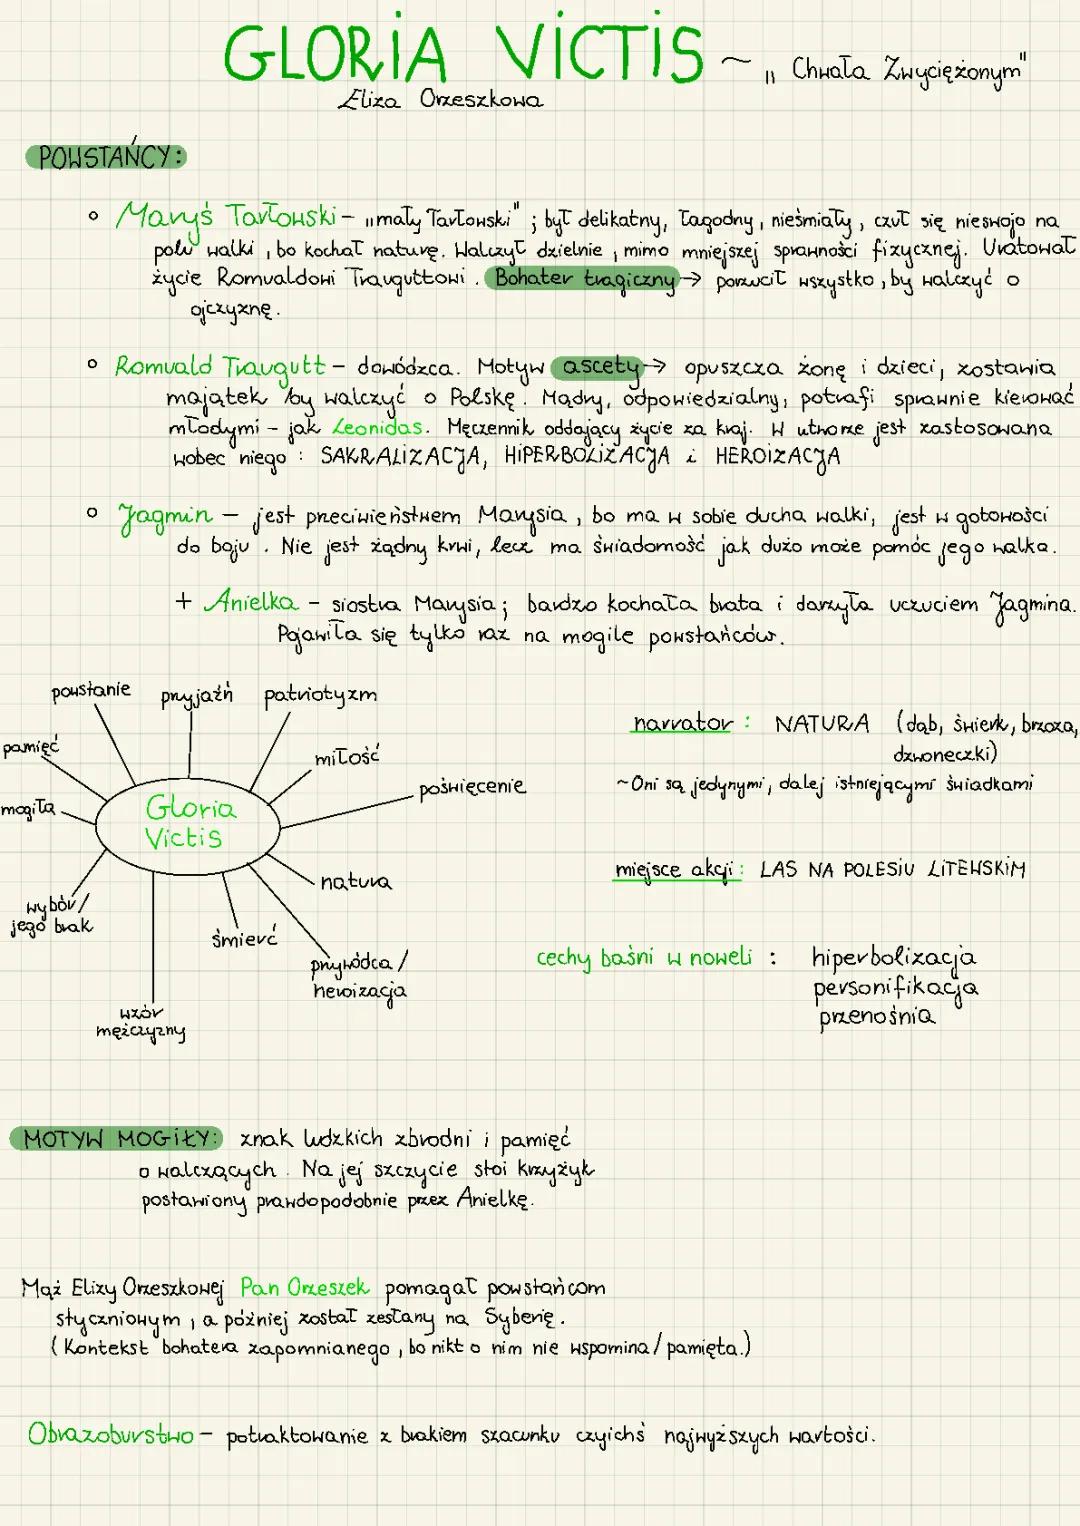 GLORIA VICTIS ~ „Chwała Zwyciężonym"
Eliza Orzeszkowa
POWSTAŃCY:
◦ Maryś Tarłowski - „mały Tarłowski" ; był delikatny, łagodny, nieśmiały, czuł się nieswojo na
polu walki, bo kochał naturę. Walczył dzielnie, mimo mniejszej sprawności fizycznej. Uratował
życie Romualdowi Trauguttowi. Bohater tragiczny → porzucił wszystko, by walczyć o
ojczyznę.
◦ Romuald Traugutt - dowódzca. Motyw ascety → opuszcza żonę i dzieci, zostawia
majątek by walczyć o Polskę. Mądry, odpowiedzialny, potrafi sprawnie kierować
młodymi - jak Leonidas. Męczennik oddający życie za kraj. W utworze jest zastosowana
wobec niego : SAKRALIZACJA, HIPERBOLIZACJA i HEROIZACJA
◦ Jagmin - jest przeciwieństwem Marysia, bo ma w sobie ducha walki, jest w gotowości
do boju. Nie jest żądny krwi, lecz ma świadomość jak dużo może pomóc jego walka.
+ Anielka - siostra Marysia; bardzo kochała brata i darzyła uczuciem Jagmina.
Pojawiła się tylko raz na mogile powstańców.
powstanie przyjaźń patriotyzm
pamięć
miłość
mogiła
poświęcenie
Gloria
Victis
natura
wybór/
jego brak
śmierć
przywódca/
heroizacja
wzór
mężczyzny
narrator : NATURA (dąb, świerk, brzoza,
dzwoneczki)
~Oni są jedynymi, dalej istniejącymi świadkami
miejsce akcji : LAS NA POLESIU LITEWSKIM
cechy baśni w noweli : hiperbolizacja
personifikacja
przenośnia
MOTYW MOGIŁY: znak ludzkich zbrodni i pamięć
o walczących. Na jej szczycie stoi krzyżyk
postawiony prawdopodobnie przez Anielkę.
Mąż Elizy Orzeszkowej Pan Orzeszek pomagał powstańcom
styczniowym, a później został zesłany na Syberię.
(Kontekst bohatera zapomnianego, bo nikt o nim nie wspomina/pamięta.)
Obrazoburstwo - potraktowanie z brakiem szacunku czyichś najwyższych wartości.